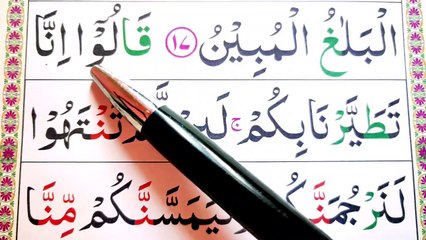 الْبَلٰغُ الْمُبِيْنُ ﴿۱۷﴾ قَالُوْۤا اِنَّا
تَطَيَّرْنَا بِكُمْ ۚ تَنْتَهُوْا
لَنَرْجُمَنَّكُمْ وَلَيَمَسَّنَّكُمْ مِّنَّا